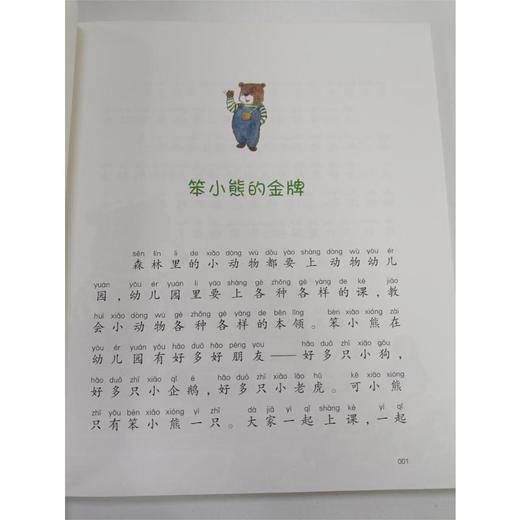 笨小熊的金牌
sēn lín li de xiǎo dòng wù dōu yào shàng dòng wù yòu ér
森林里的小动物都要上动物幼儿
yuán yòu ér yuán li yào shàng gè zhǒng gè yàng de kè jiāo
园，幼儿园里要上各种各样的课，教
huì xiǎo dòng wù gè zhǒng gè yàng de běn lǐng bèn xiǎo xióng zài
会小动物各种各样的本领。笨小熊在
yòu ér yuán yǒu hǎo duō hǎo péng you hǎo duō zhī xiǎo gǒu
幼儿园有好多好朋友——好多只小狗，
hǎo duō zhī xiǎo qǐ é hǎo duō zhī xiǎo lǎo hǔ kě xiǎo xióng
好多只小企鹅，好多只小老虎。可小熊
zhǐ yǒu bèn xiǎo xióng yì zhī dà jiā yì qǐ shàng kè yì qǐ
只有笨小熊一只。大家一起上课，一起
001